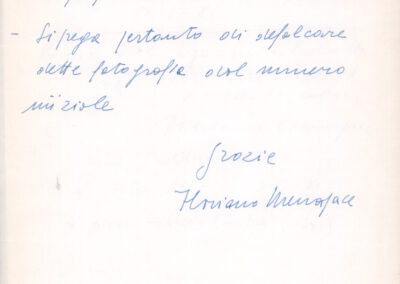 - Si prega pertanto di defalcare
dette fotografia dal numero
iniziale
Grazie
Floriano Menapace